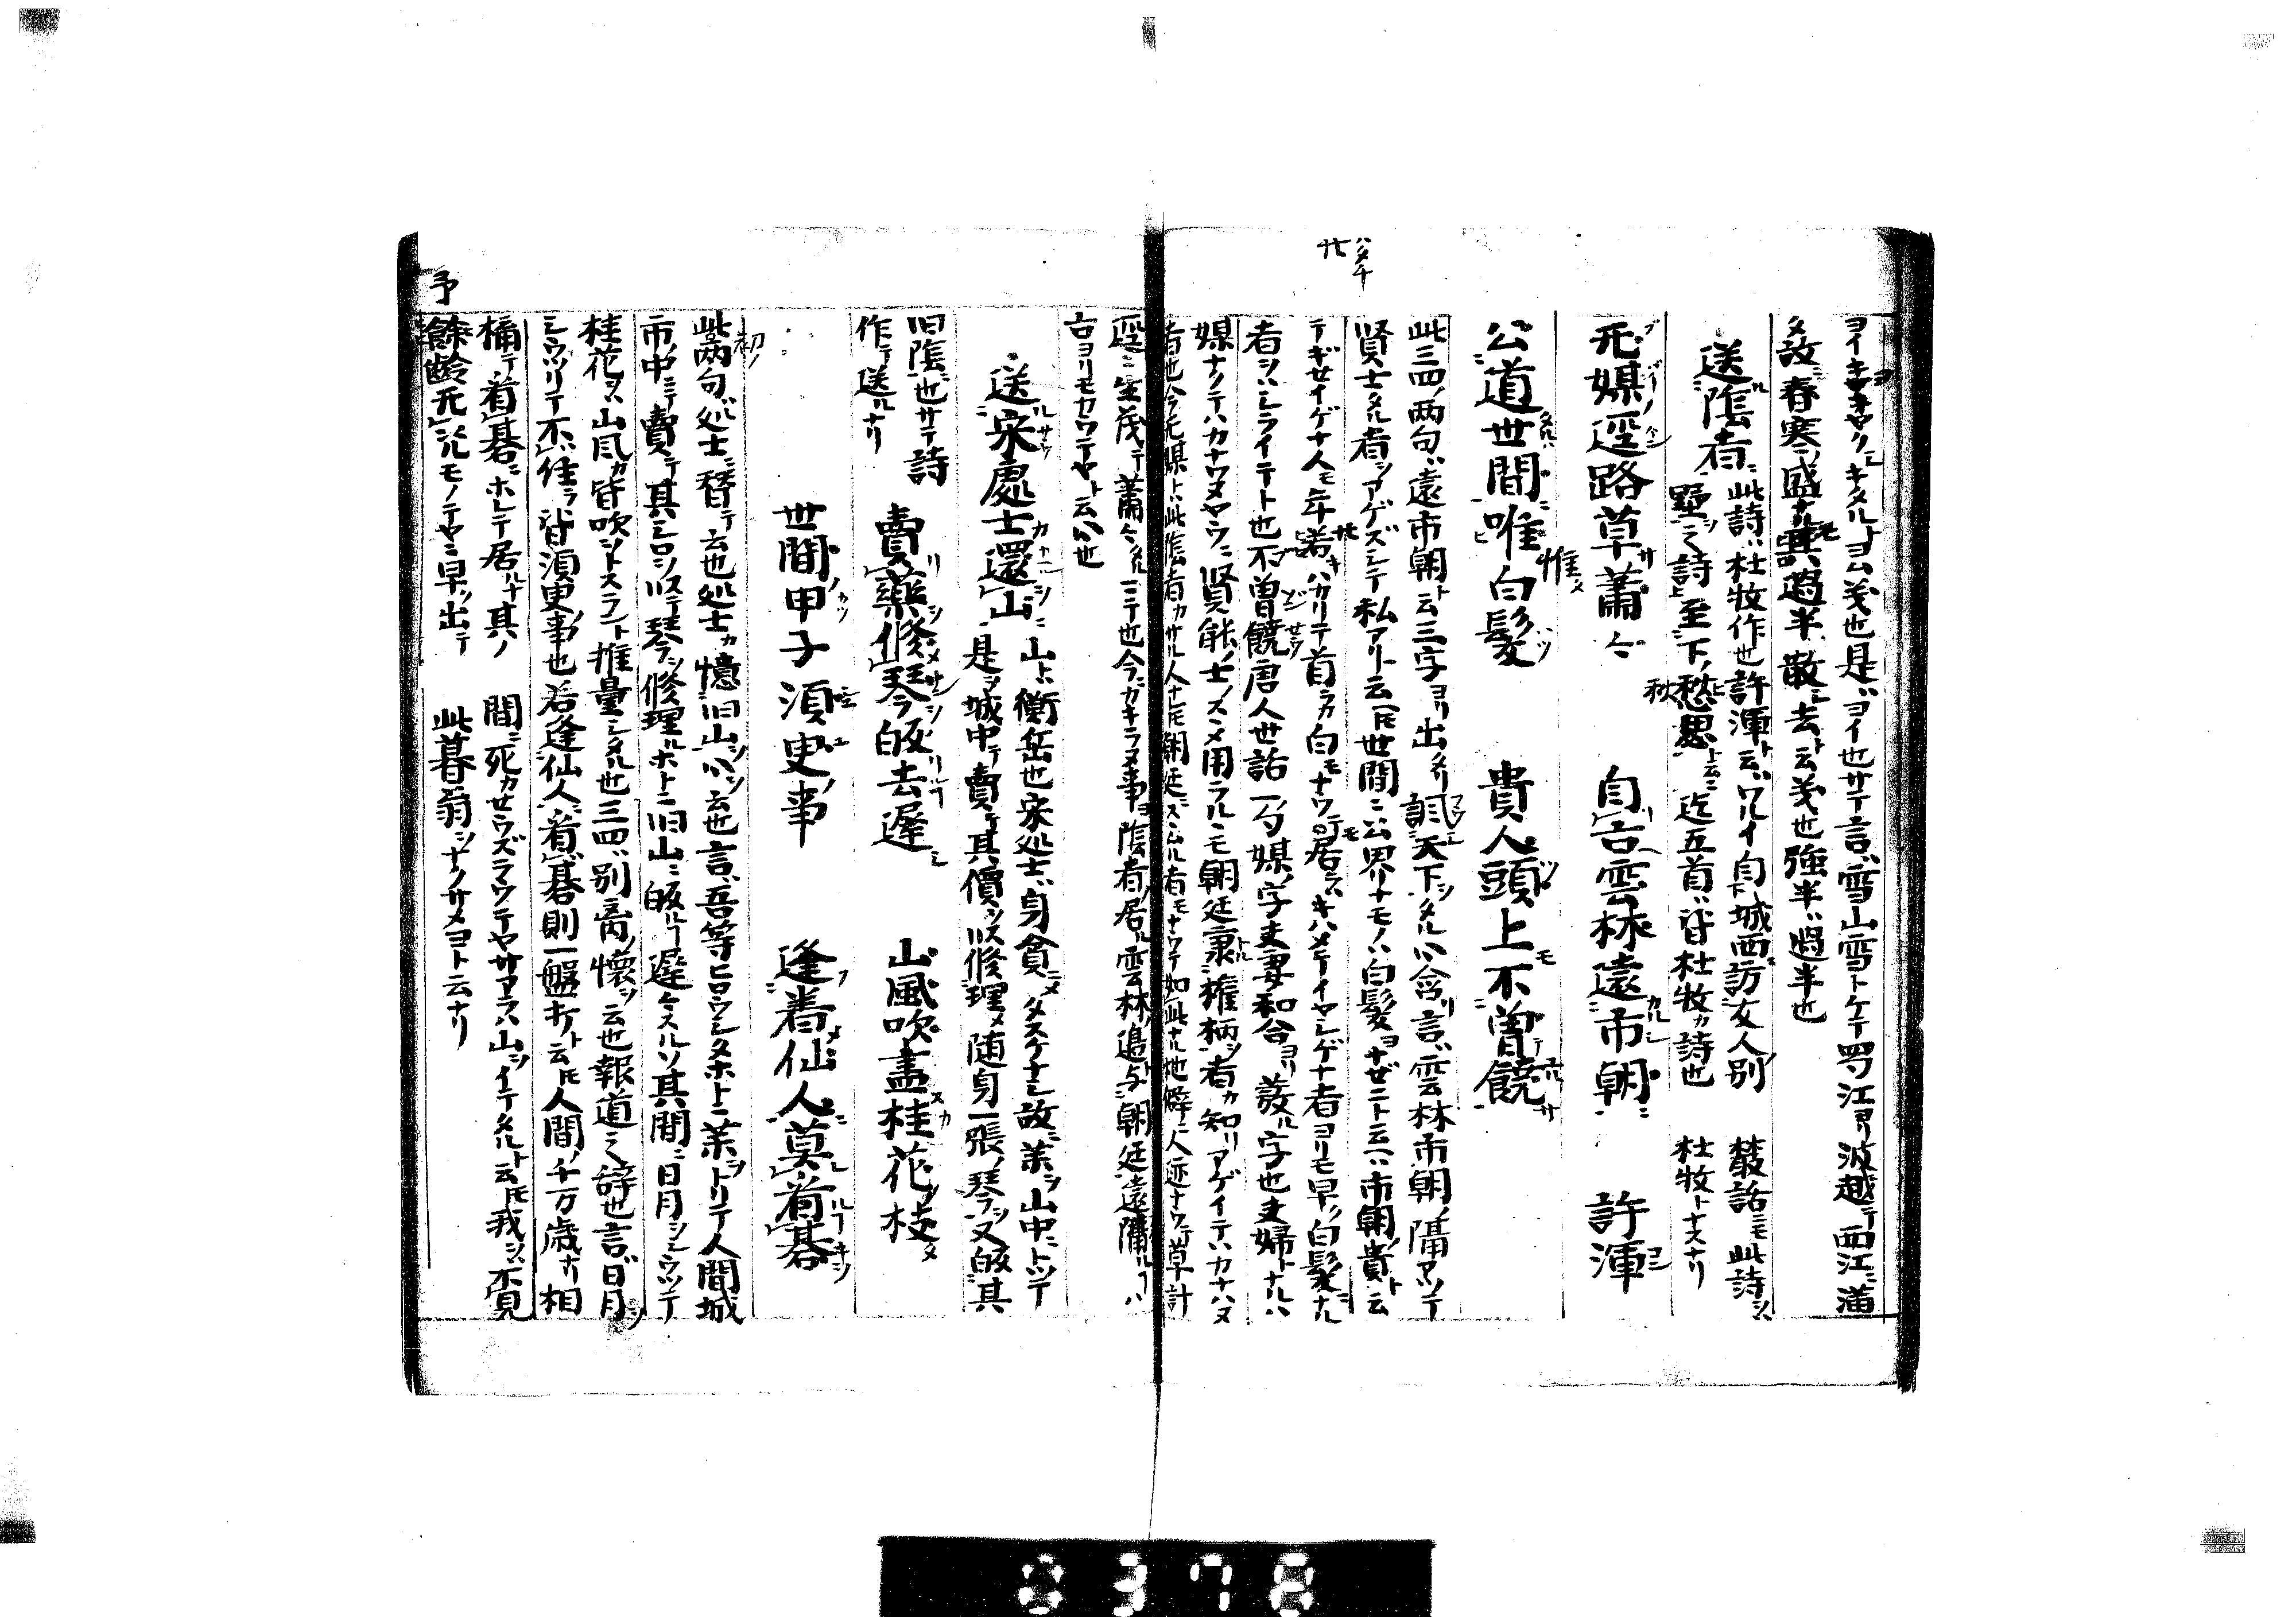 ヨイキサキヤクニキタルナヨム義也是ハヨイ也サテ言ハ雪山雪トケテ蜀江ヨリ波越テ西江ニ満
タ故ニ春寒盛ナル其過半散去ト云義也強半ハ過半也
送隱者 此詩ハ杜牧作也許渾ト云ハワルイ自下城西訪友人別 叢話ニモ此詩ヲハ
墅之詩至下秋思上云迄五首ハ皆杜牧カ詩也 杜牧トナスナリ
无媒逕路草蕭々 自古雲林遠市朝 許渾
公道世間唯白髮 貴人頭上不曽饒
惟
秋
ハタチ
廿
此三四ノ両句ハ遠市朝ト云三字ヨリ出タリ諷天下タル心ヲ含リ言ハ雲林市朝ノ隔アツテ
賢士タル者ヲアゲズシテ私アリト云𪜈世間ニ公界ナモノハ白髮ヨナゼニト云ニハ市朝ノ貴ト云
テギゼイゲナ人モ年若キハカリテ首ラカ白モナウテ居ラズキハメテイヤシゲナ者ヨリモ早ク白髮ナル
者ヲハシライテト也不曽饒唐人世話一句媒ノ字夫妻和合ヨリ發ル字也夫婦トナルハ
媒ナクテハカナワヌヤウニ賢能ノ士ノスヽメ用ラルヽモ朝廷ニ秉權柄ヲ者カ知リアゲイテハカナハヌ
者也今无媒ト此隱者カサル人ナレ𪜈朝廷ニスヽムル者モナウテ如此ナル地僻ニ人迹ナウテ草計
逕ニ生茂テ蕭々タル
古ヨリモカワテヤト云心也
送宋處士還山 山トハ衡岳也宋処士ハ身貧ニメタスケナシ故ニ茶ヲ山中ニトツテ
是ヲ城中テ賣テ其價ヲ以テ修理メ隨身一張ノ琴ヲ又皈ニ其
旧隱也サテ詩
作テ送ルナリ
賣藥修琴皈去遲 山風吹盡桂花枝
世間甲子須臾事 逢着仙人莫看碁
初ノ
此両句ハ処士ニ替テ云也処士カ憶旧山ヲ心ヲ云也言ハ吾等ヒロウシタホトニ茶ヲトリテ人間城
市ノ中ニテ賣テ其シロヲ以テ琴ヲ修理ルホトニ旧山ニ皈ルヿ遲々スルソ其間ニ日月ヲシウツテ
桂花ヲハ山風カ皆吹ヲトスラント推量シタル也三四ハ別離ノ懷ヲ云也報道之辞也言ハ日月
シウツリテ不住ラ皆須臾ノ事也若逢仙人ニ看碁則一盤ナト云𪜈人間ノ千万歳ナリ相
構テ看碁ニホレテ居ルナ其ノ 間ニ死カセウズラウテヤサアラハ山ヲイテタルト云𪜈我ヲハ不見
餘齡无心元モノテヤニ早ク出テ 此暮翁ヲナクサメヨト云ナリ
予